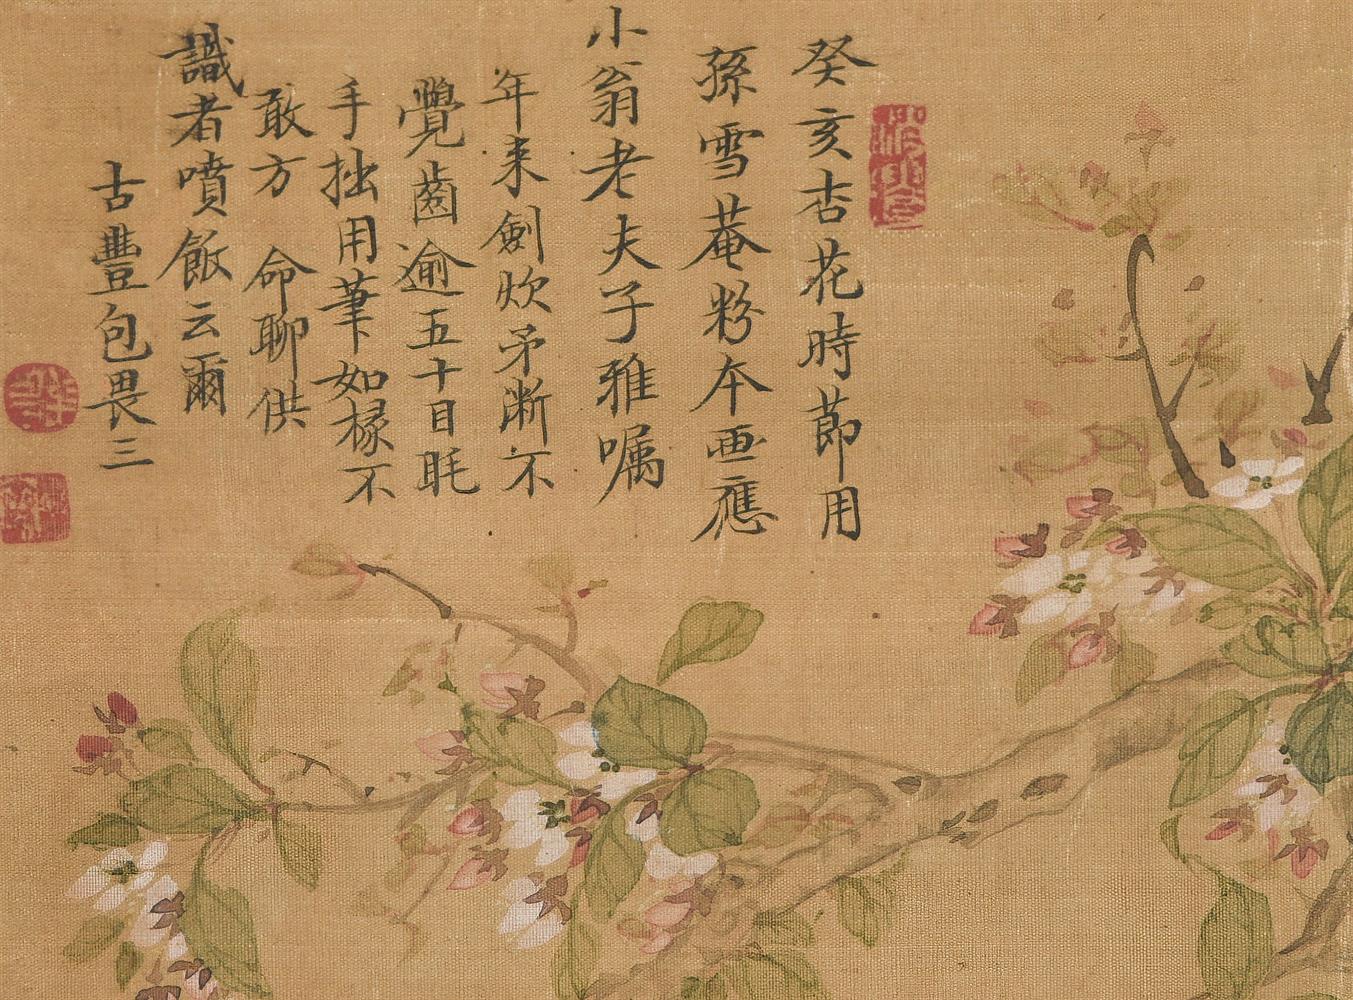 癸亥杏花時節用
孫雪菴粉本画應
小翁老夫子雅嘱
年来劍炊矛淅不
覺齒逾五十目眊
手拙用筆如椽不
敢方 命聊供
識者噴飯云爾
古豐包畏三